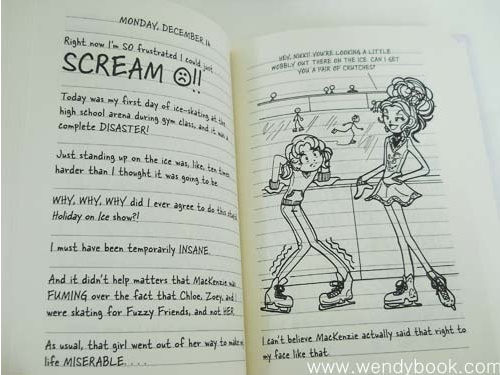 MONDAY, DECEMBER 16
Right now I'm SO frustrated I could just
SCREAM !!
Today was my first day of ice-skating at the
high school arena during gym class, and it was a
complete DISASTER!
Just standing up on the ice was, like, ten times
harder than I thought it was going to be.
WHY, WHY, WHY did I ever agree to do this
Holiday on Ice show?!
I must have been temporarily INSANE.
And it didn't help matters that MacKenzie was
FUMING over the fact that Chloe, Zoey, and I
were skating for Fuzzy Friends, and not HER.
As usual, that girl went out of her way to make my
life MISERABLE. . . .
HEY, NIKKI! YOU'RE LOOKING A LITTLE
WOBBLY OUT THERE ON THE ICE. CAN I GET
YOU A PAIR OF CRUTCHES?
I can't believe MacKenzie actually said that right to
my face like that.
www.wendybook.com